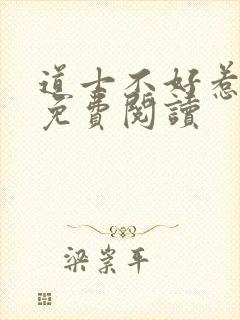 道士不好惹
免費閱讀
梁崇平